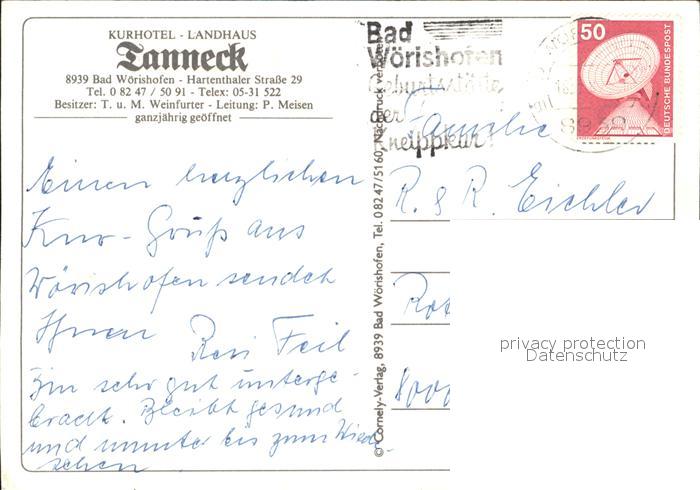 KURHOTEL - LANDHAUS
Tanneck
8939 Bad Wörishofen - Hartenthaler Straße 29
Tel. 0 82 47 / 50 91 - Telex: 05-31 522
Besitzer: T. u. M. Weinfurter - Leitung: P. Meisen
ganzjährig geöffnet
Einen herzlichen
Kur-Gruß aus
Wörishofen sendet
Ihnen Resi Feil
Bin sehr gut unterge-
bracht. Bleibt gesund
und munter bis zum Wieder-
sehen
© Cornely-Verlag, 8939 Bad Wörishofen, Tel. 0 82 47/5160, Nachdruck verboten
Bad
Wörishofen
Geburtsstätte
der
Kneippkur!
8939
50
DEUTSCHE BUNDESPOST
Familie
R. & R. Eichler
8000
privacy protection
Datenschutz